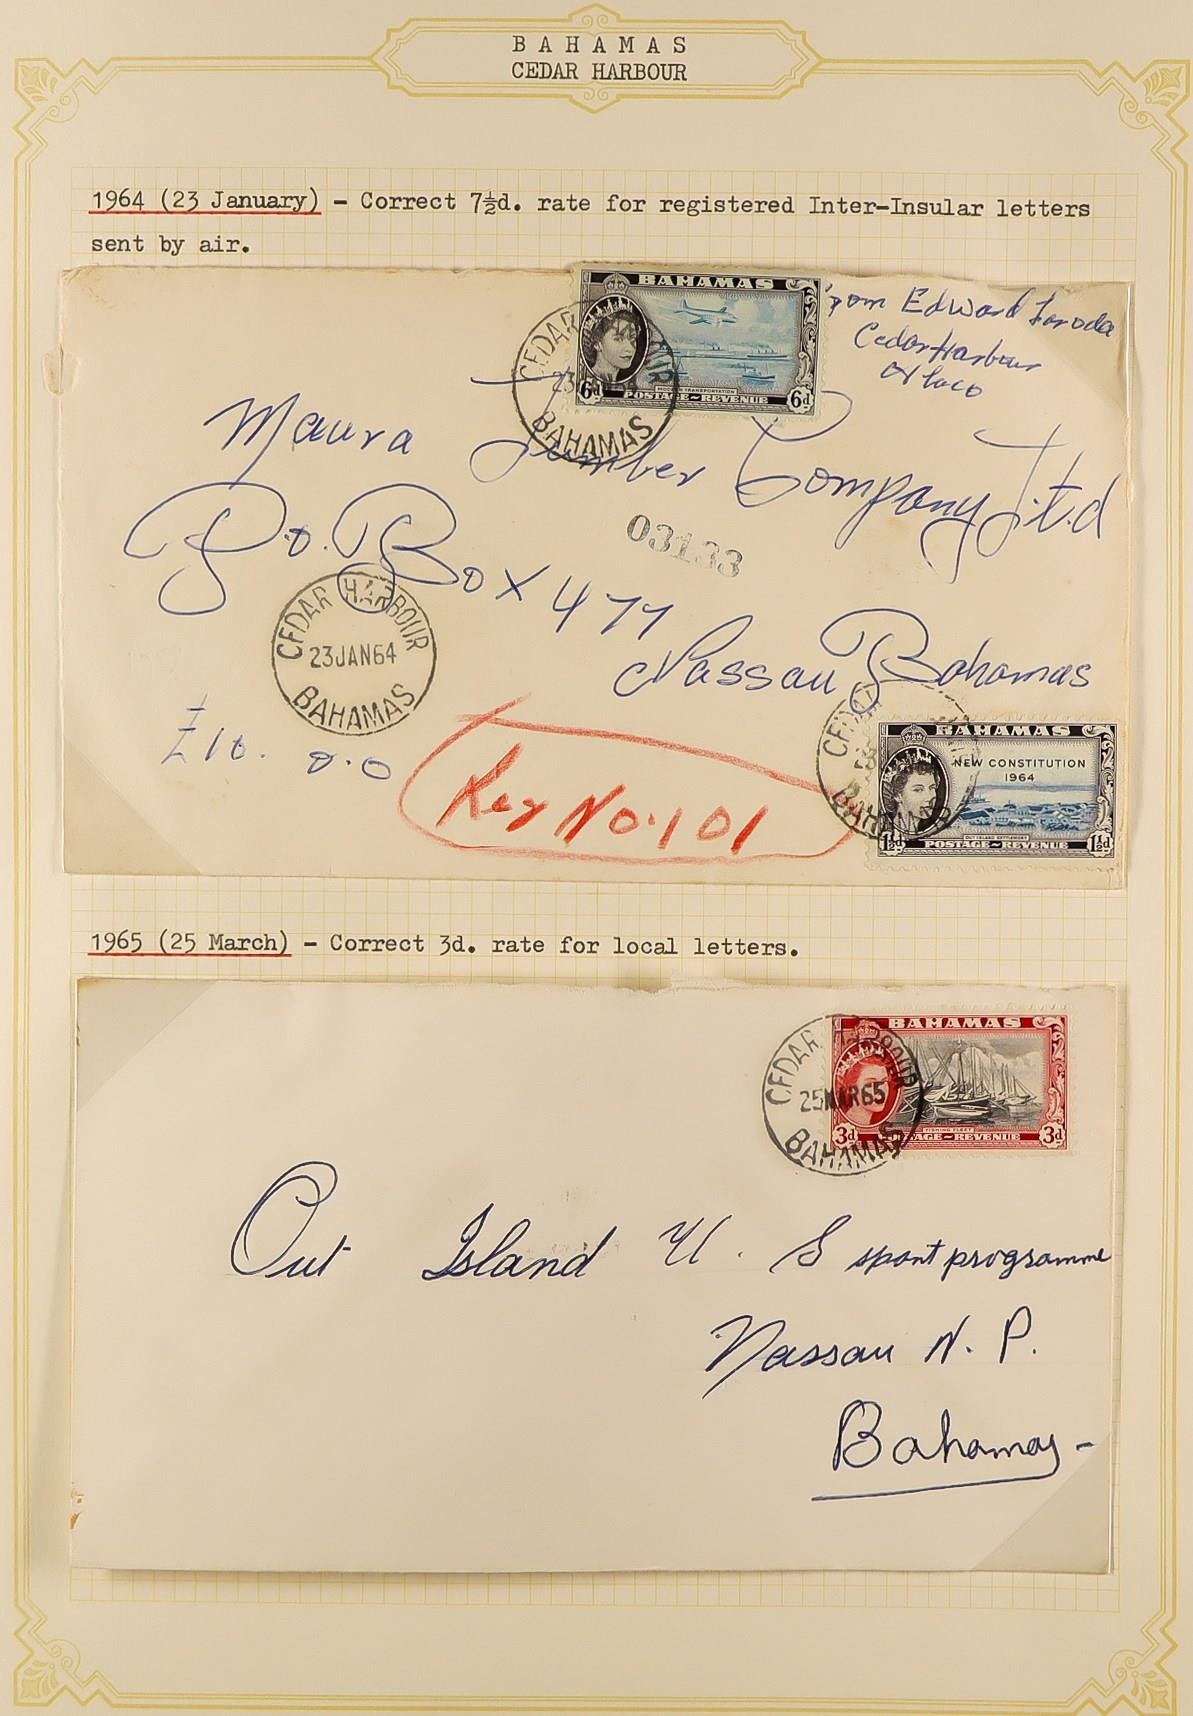 BAHAMAS
CEDAR HARBOUR
1964 (23 January) - Correct 7½d. rate for registered Inter-Insular letters
sent by air.
BAHAMAS
6d 6d
MODERN TRANSPORTATION
POSTAGE~REVENUE
CEDAR HARBOUR
23
BAHAMAS
From Edward
Cedar Harbour
Abaco
Maura Lumber Company Ltd
P.O. Box 477
Nassau Bahamas
03133
CEDAR HARBOUR
23JAN64
BAHAMAS
£10. 0.0
Reg No. 101
CEDAR
BAHAMAS
BAHAMAS
NEW CONSTITUTION
1964
OUT ISLAND SETTLEMENT
1½d 1½d
POSTAGE~REVENUE
1965 (25 March) - Correct 3d. rate for local letters.
CEDAR HARBOUR
25MAR65
BAHAMAS
BAHAMAS
FISHING FLEET
3d 3d
POSTAGE~REVENUE
Out Island U. S spont programme
Nassau N. P.
Bahamas -